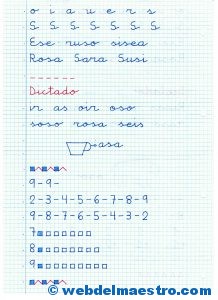 o i a u e r s
S S S S S S S
Ese ruso sisea
Rosa Sara Susi
Dictado
ir as oír oso
soso rosa seis
asa
9-9-
2-3-4-5-6-7-8-9
9-8-7-6-5-4-3-2
7
8
9
© webdelmaestro.com